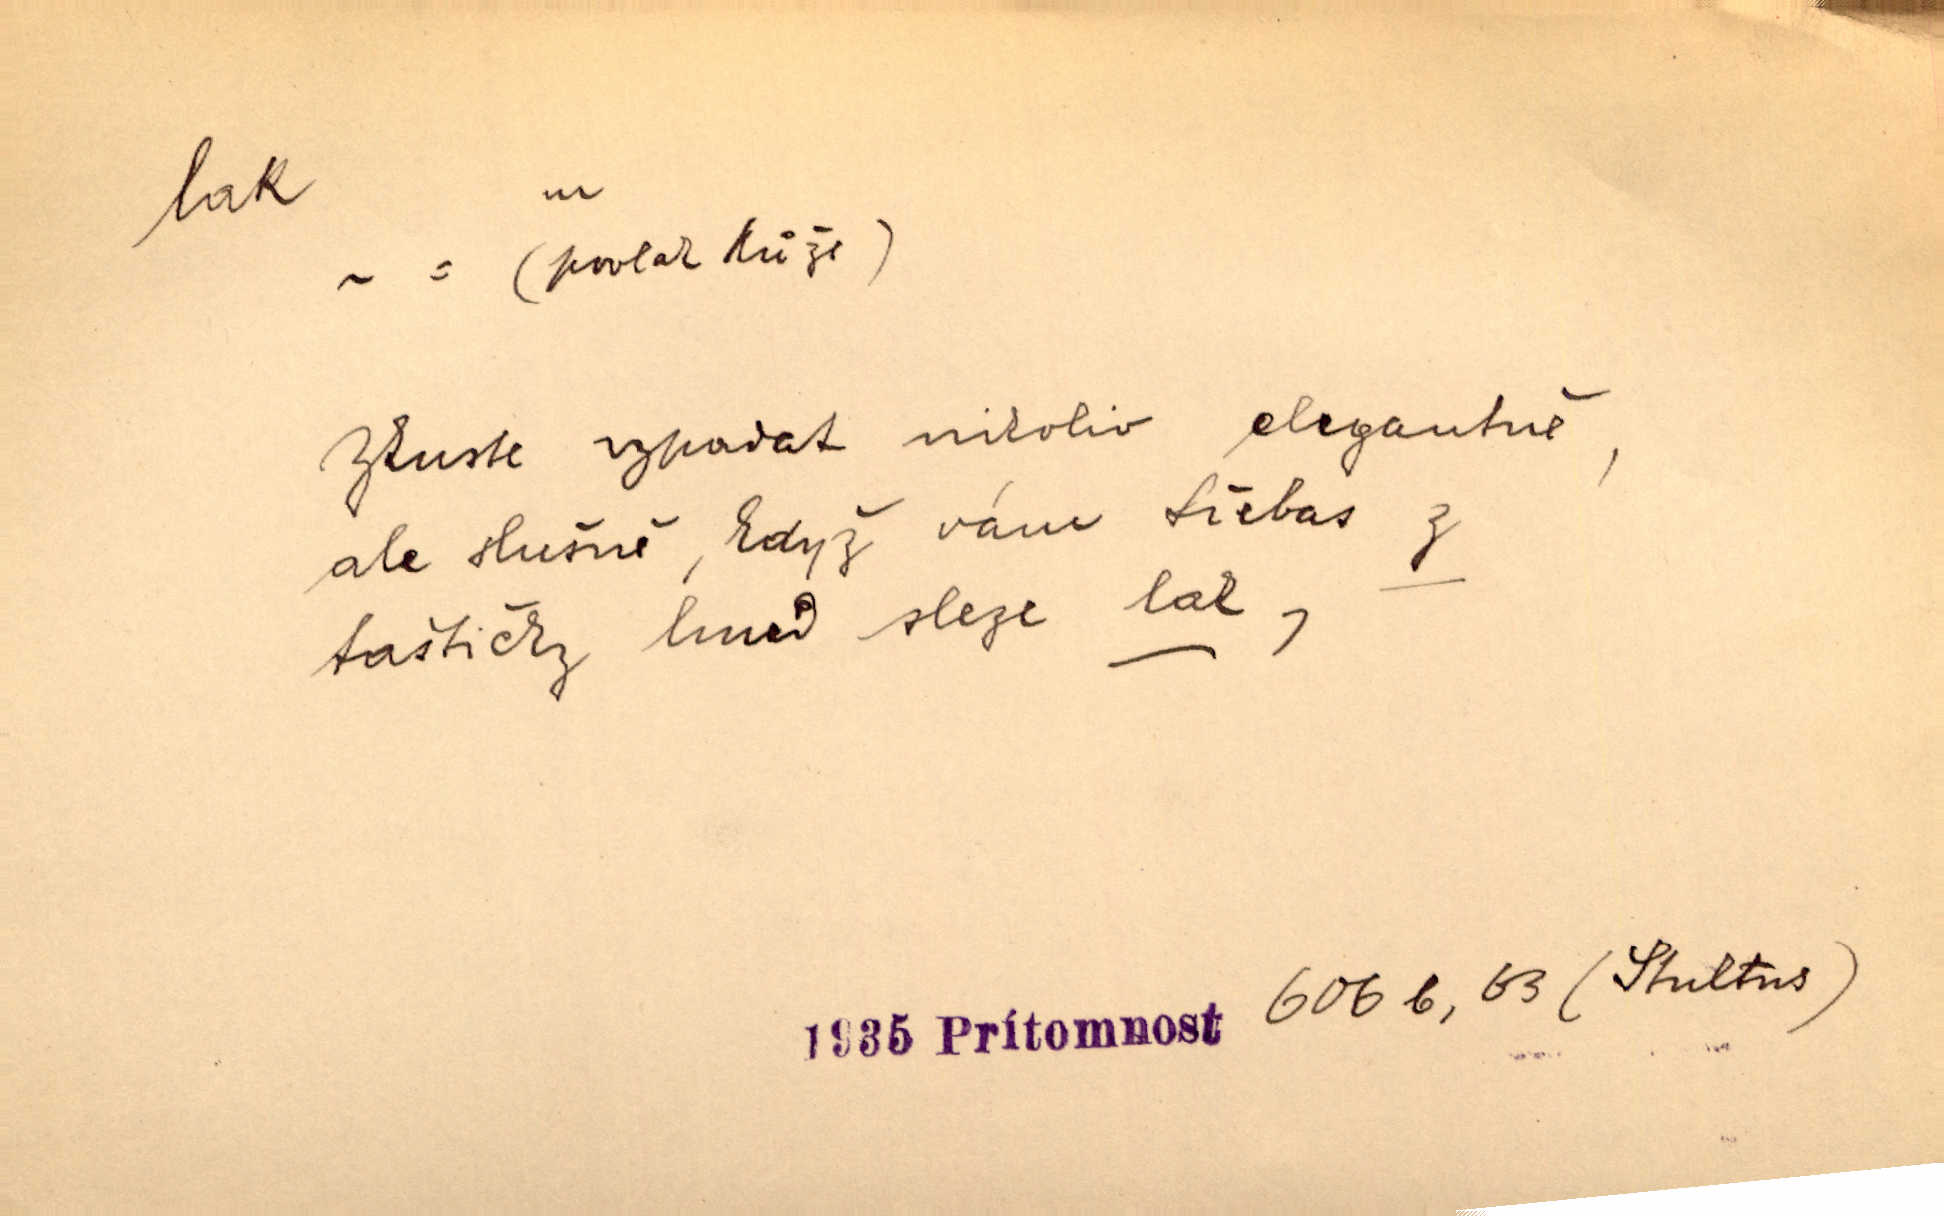 lak
~ = (povlak kůže)
Zkuste vypadat nikoliv elegantně,
ale slušně, když vám třebas z
taštičky hned sleze lak,
1935 Prítomnost 606 b, 63 (Stultus)